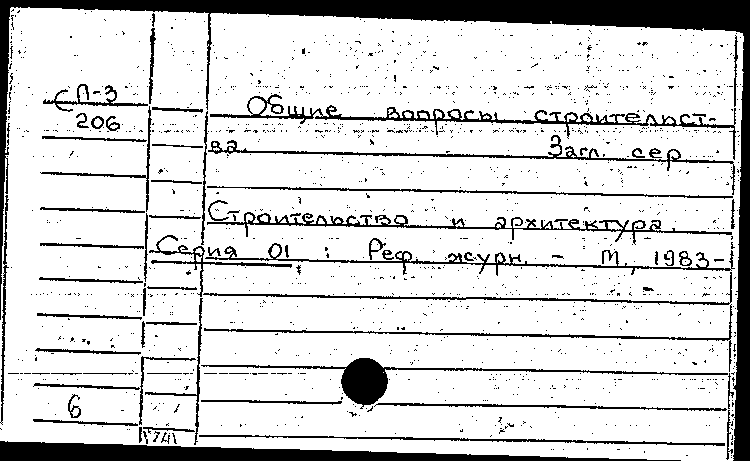 С П-3
206
Общие вопросы строительст-
ва. Загл. сер
Строительство и архитектура.
Серия 01 : Реф. журн. - М, 1983-
6